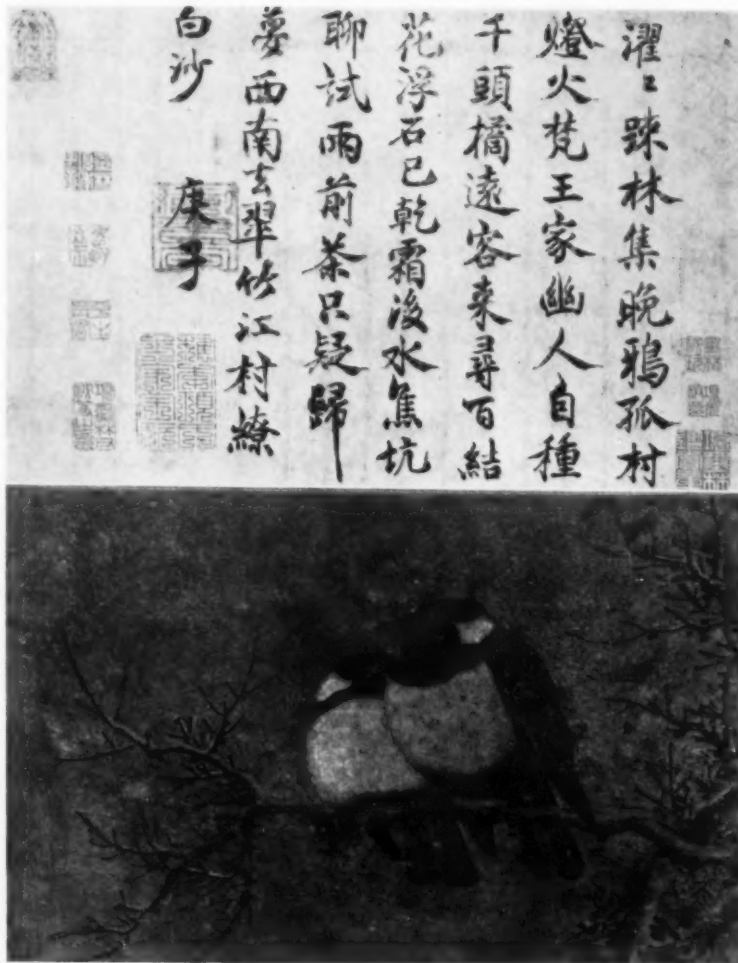 濯〻踈林集晚鴉孤村
燈火梵王家幽人自種
千頭橘遠客来尋百結
花浮石已乾霜後水焦坑
聊試雨前茶只疑歸
夢西南去翠竹江村繚
白沙 庚子